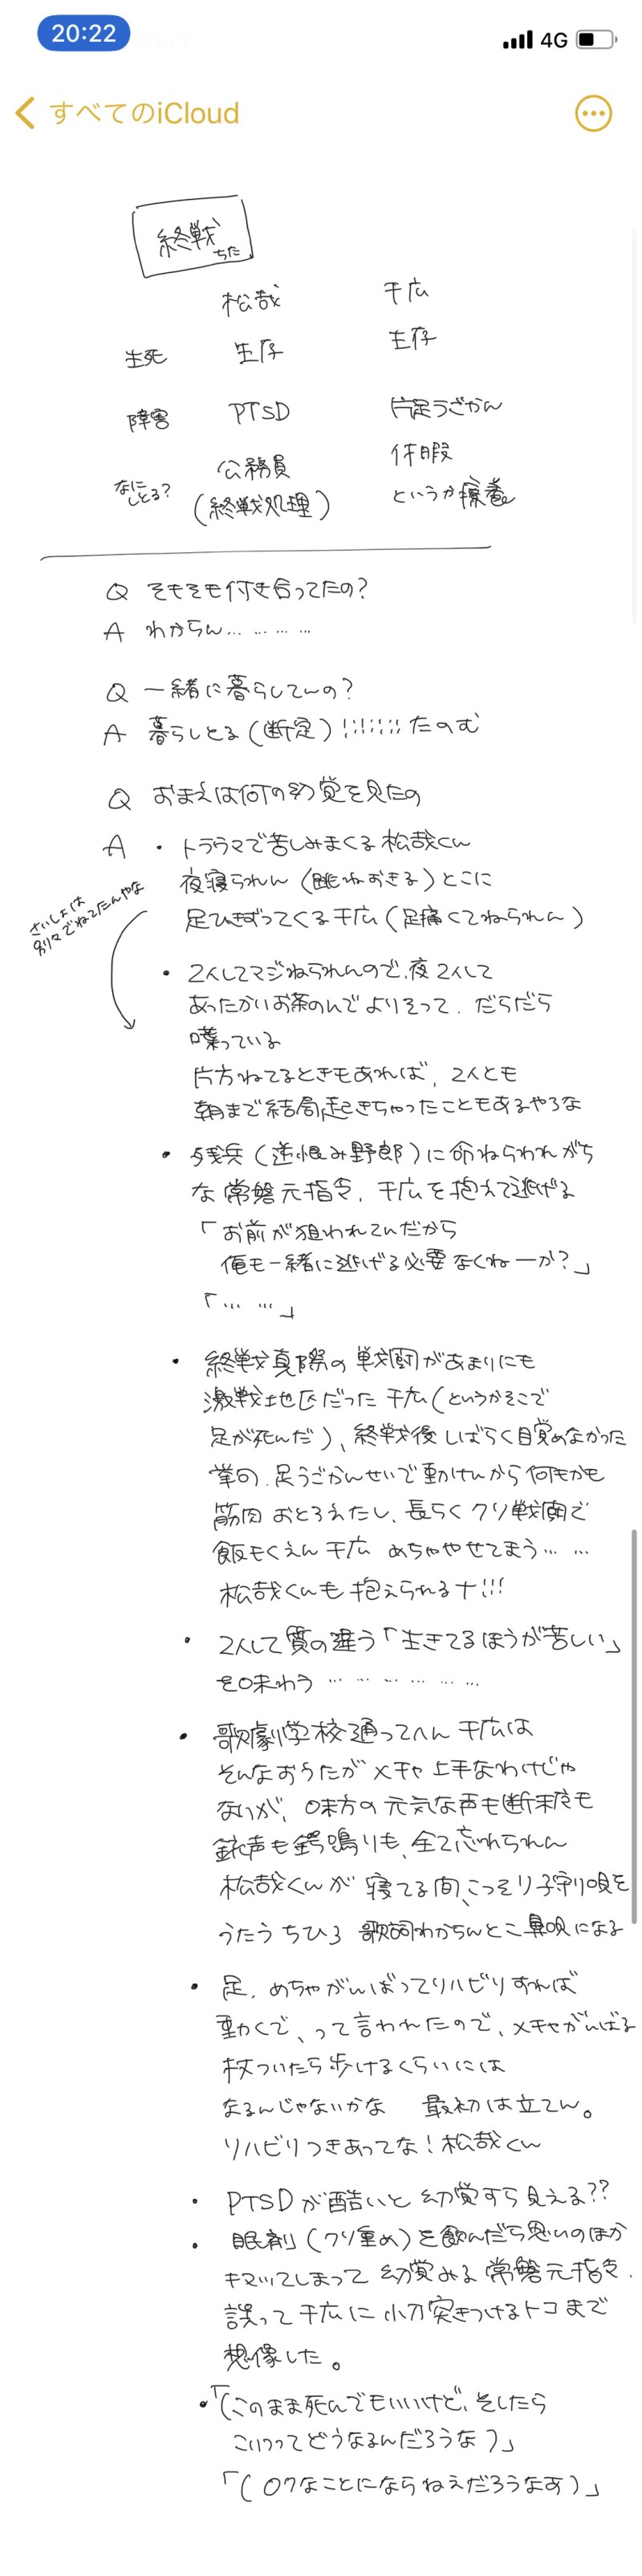 20:22
4G
すべてのiCloud
終戦
ちた
松哉 千広
生死 生存 生存
障害 PTSD 片足うごかん
なに
しとる?
公務員
(終戦処理)
休暇
というか療養
Q そもそも付き合ってたの?
A わからん… … … …
Q 一緒に暮らしてんの?
A 暮らしとる(断定)!!!!!!!たのむ
Q おまえは何の幻覚を見たの
A ・トラウマで苦しみまくる松哉くん
夜寝られん(跳ねおきる)とこに
足ひきずってくる千広(足痛くてねられん)
さいしょは
別々でねてたんやな
・2人してマジねられんので、夜2人して
あったかいお茶のんでよりそって、だらだら
喋っている
片方ねてるときもあれば、2人とも
朝まで結局起きちゃったこともあるやろな
・残兵(逆恨み野郎)に命ねらわれがち
な常磐元指令、千広を抱えて逃げる
「お前が狙われてんだから
俺も一緒に逃げる必要なくねーか?」
「… …」
・終戦真際の戦闘があまりにも
激戦地区だった千広(というかそこで
足が死んだ)、終戦後しばらく目覚めなかった
挙句、足うごかんせいで動けんから何もかも
筋肉おとろえたし、長らくクソ戦闘で
飯もくえん千広 めちゃやせてまう… …
松哉くんも抱えられるナ!!!
・2人して質の違う「生きてるほうが苦しい」
を味わう … … … … …
・歌劇学校通ってへん千広は
そんなおうたがメチャ上手なわけじゃ
ないが、味方の元気な声も断末魔も
銃声も鍔鳴りも、全て忘れられん
松哉くんが寝てる間、こっそり子守り唄を
うたうちひろ 歌詞わからんとこ鼻唄になる
・足、めちゃがんばってリハビリすれば
動くで、って言われたので、メチャがんばる
杖ついたら歩けるくらいには
なるんじゃないかな 最初は立てん。
リハビリつきあってな!松哉くん
・PTSDが酷いと幻覚すら見える??
・眠剤(クソ重め)を飲んだら思いのほか
キマッてしまって幻覚みる常磐元指令、
誤って千広に小刀突きつけるトコまで
想像した。
・「(このまま死んでもいいけど、そしたら
こいつってどうなるんだろうな)」
「(ロクなことにならねえだろうなあ)」